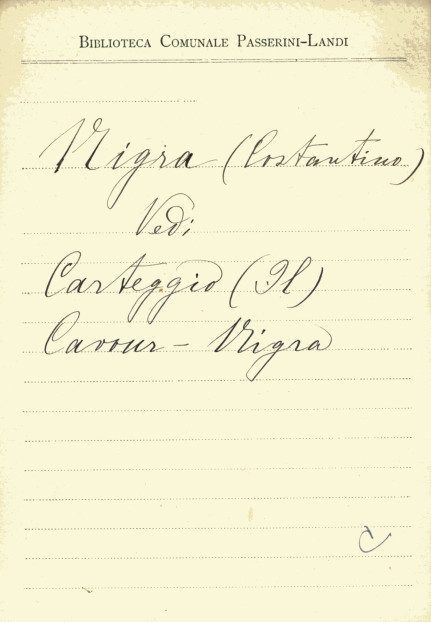 BIBLIOTECA COMUNALE PASSERINI-LANDI
Nigra (Costantino)
Vedi
Carteggio (Il)
Cavour - Nigra
C